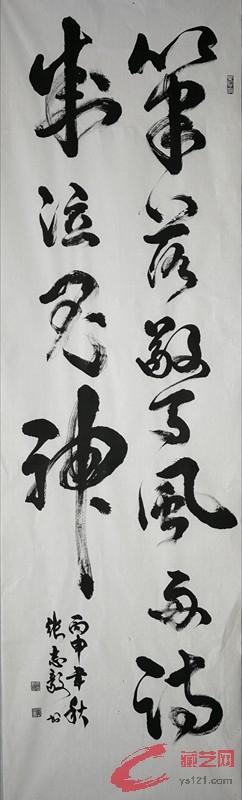 筆落驚風雨詩
成泣鬼神
丙申年秋
張志毅书
藏艺网
ys121.com